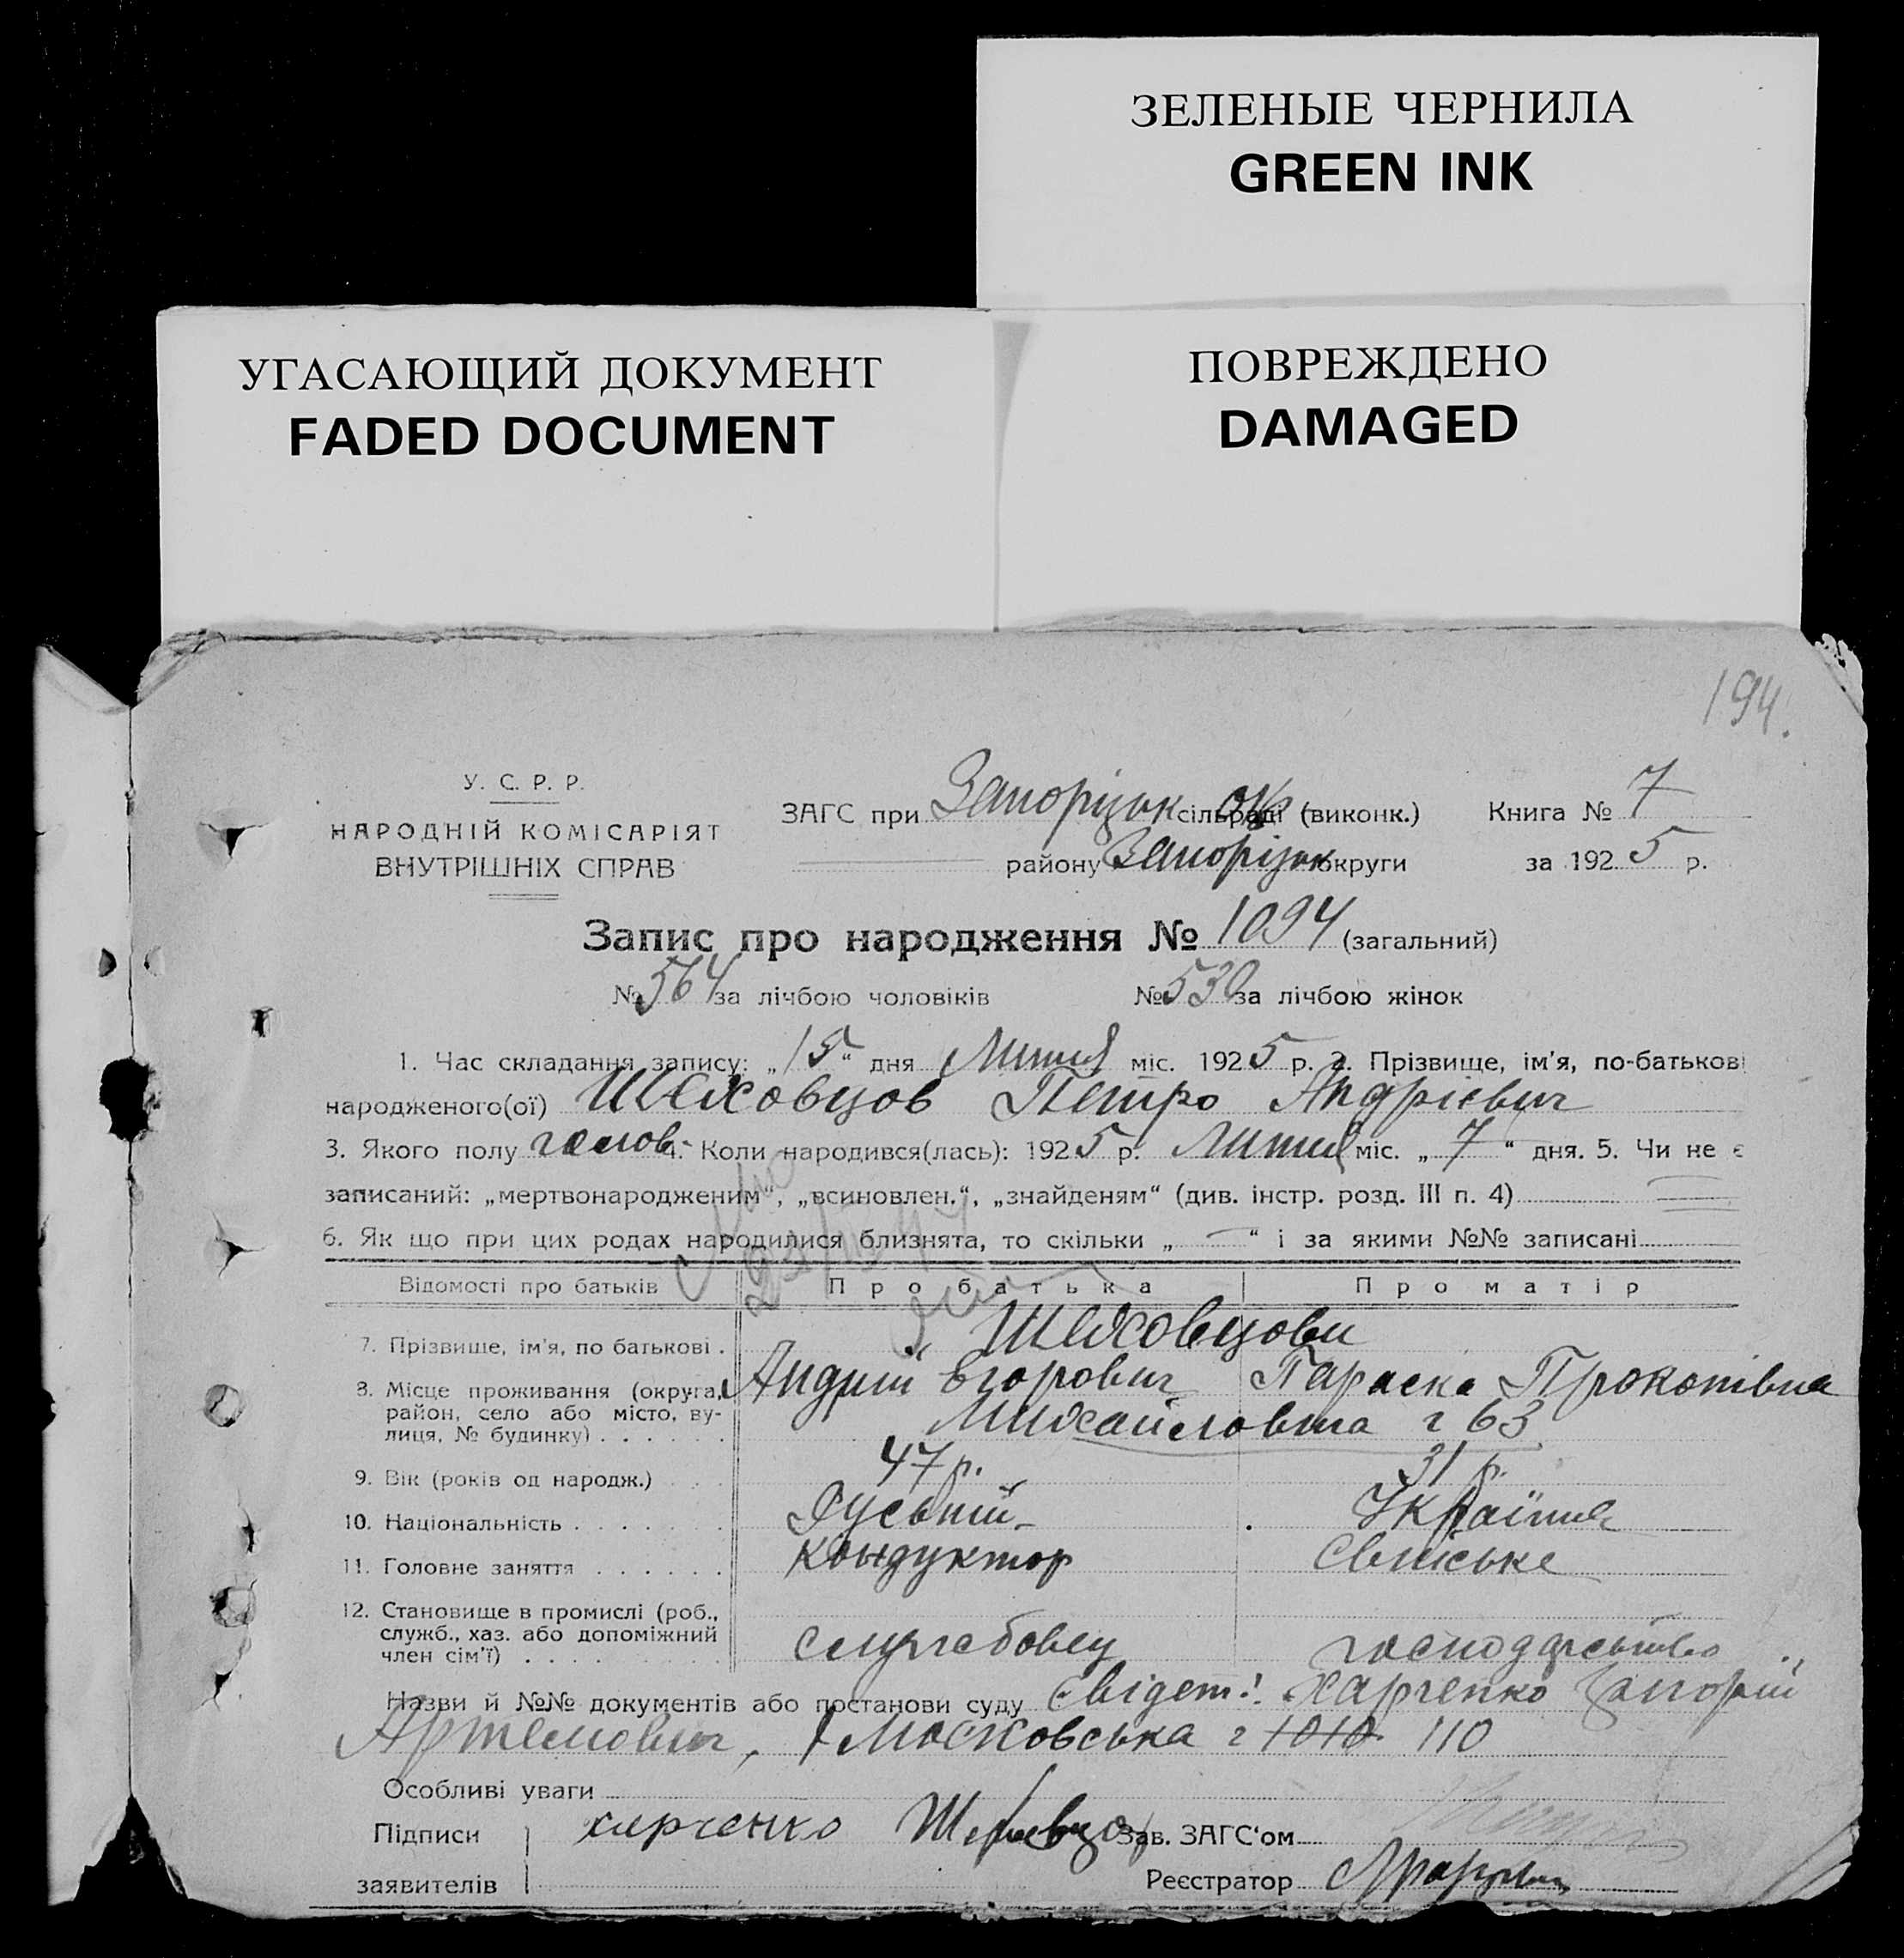 ЗЕЛЕНЫЕ ЧЕРНИЛА
GREEN INK
УГАСАЮЩИЙ ДОКУМЕНТ
FADED DOCUMENT
ПОВРЕЖДЕНО
DAMAGED
194.
У. С. Р. Р.
НАРОДНІЙ КОМІСАРІЯТ
ВНУТРІШНІХ СПРАВ
ЗАГС при Запоріжськ сільраді окр (виконк.) Книга № 7
району Запоріжськ округи за 1925 р.
Запис про народження № 1094 (загальний)
№ 564 за лічбою чоловіків № 530 за лічбою жінок
1. Час складання запису: „15“ дня Липня міс. 1925 р. 2. Прізвище, ім’я, по-батькові
народженого(ої) Шеховцов Петро Андрієвич
3. Якого полу чолов. 4. Коли народився(лась): 1925 р. Липня міс. „7“ дня. 5. Чи не є
записаний: „мертвонародженим“, „всиновлен.“, „знайденям“ (див. інстр. розд. III п. 4)
6. Як що при цих родах народилися близнята, то скільки „—“ і за якими №№ записані
Відомості про батьків Про батька Про матір
7. Прізвище, ім’я, по батькові . Шеховцови
Андрій Єгорович Параска Прокопівна
8. Місце проживання (округа, район, село або місто, вулиця, № будинку) . . . . . . Михайловська г 63
9. Вік (років од народж.) . . . 47 р. 31 р.
10. Національність . . . . . . . Руський Українка
11. Головне заняття . . . . . . Кондуктор Сельське
12. Становище в промислі (роб., служб., хаз. або допоміжний член сім’ї) . . . . . . . . . службовец господарьство
Назви й №№ документів або постанови суду Свідет: Харченко Григорій
Артемович, Московська г 1010 110
Особливі уваги
Підписи Харченко Шеховцов Зав. ЗАГС‘ом
заявителів Реєстратор